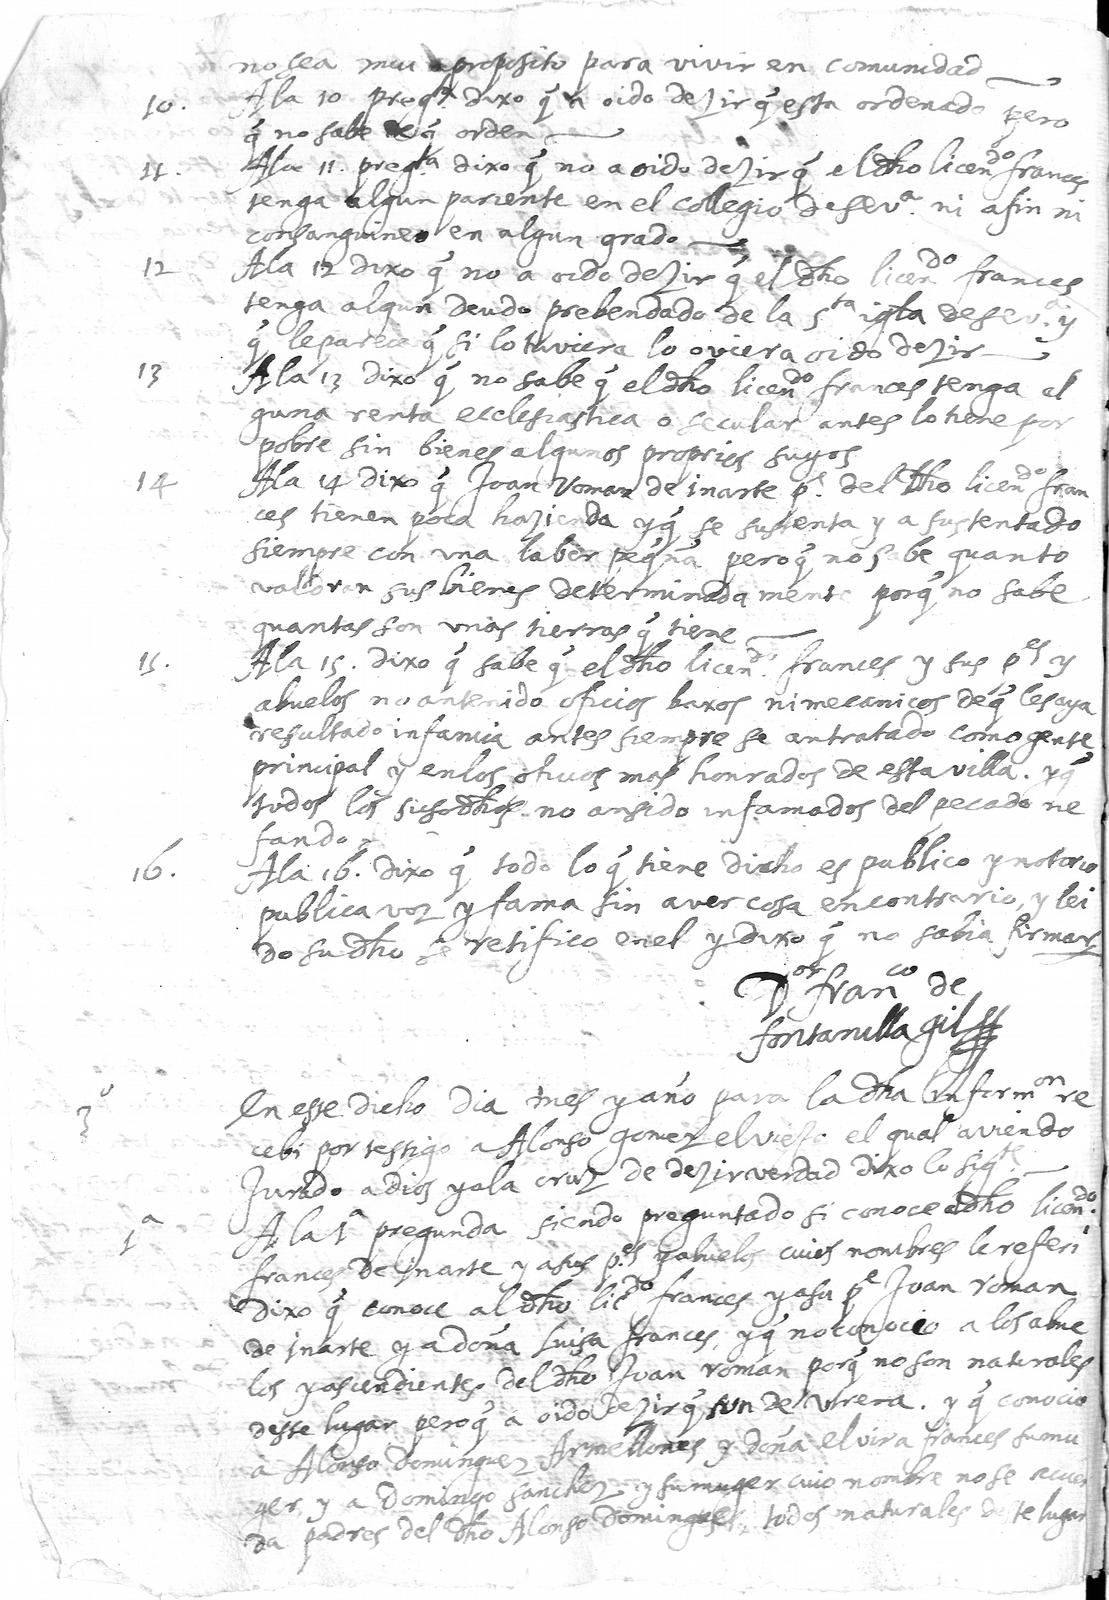 no sea muu a proposito para vivir en comunidad
10. A la 10 preg.ta dixo q̃ a oido dezir q̃ esta ordenado pero
q̃ no sabe de q̃ orden
11. A la 11. preg.ta dixo q̃ no a oido dezir q̃ el dho licen.do frances
tenga algun pariente en el collegio de Sev.a ni afin ni
consanguineo en algun grado
12 A la 12 dixo q̃ no a oido dezir q̃ el dho licen.do frances
tenga algun deudo prebendado de la S.ta igla de Sev.a y
q̃ le parece q̃ si lo tuviera lo oviera oido dezir
13 A la 13 dixo q̃ no sabe q̃ el dho licen.do frances tenga al
guna renta ecclesiastica o secular antes lo tiene por
pobre sin bienes algunos proprios suyos
14 A la 14 dixo q̃ Joan Roman de inarte p.e del dho licen.do fran
ces tienen poca hazienda y q̃ se sustenta y a sustentado
siempre con una labor peq̃ña pero q̃ no sabe quanto
valdran sus bienes determinadamente porq̃ no sabe
quantas son unas tierras q̃ tiene
15. A la 15. dixo q̃ sabe q̃ el dho licen.do frances y sus p.es y
abuelos no an tenido oficios baxos ni mecanicos de q̃ les aya
resultado infamia antes siempre se an tratado como gente
principal y en los oficios mas honrados de esta villa. y q̃
todos los susodhos no an sido infamados del pecado ne
fando
16. A la 16. dixo q̃ todo lo q̃ tiene dicho es publico y notorio
publica voz y fama sin aver cosa en contrario, y lei
do su dho se retifico en el y dixo q̃ no sabia firmar
D.or fran.co de
fontanilla gil
3.o En esse dicho dia mes y año para la dha inform.on re
cebi por testigo a Alonso gomez el viejo el qual aviendo
Jurado a dios y a la cruz de dezir verdad dixo lo sig.te
1.a A la 1.a pregunda siendo preguntado si conoce al dho licen.do
frances de inarte y a sus p.es y abuelos cuios nombres le referi
dixo q̃ conoce al dho lic.do frances y a su p.e Juan roman
de inarte y a doña Luisa frances, y q̃ no conocio a los abue
los y ascendientes del dho Juan roman porq̃ no son naturales
desse lugar pero q̃ a oido dezir q̃ son de Utrera. y q̃ conocio
a Alonso Dominguez Armellones y doña elvira frances su mu
ger, y a Domingo sanchez y su muger cuio nombre no se acuer
da padres del dho Alonso Dominguez, todos naturales deste lugar